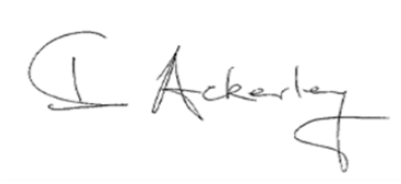 I Ackerley